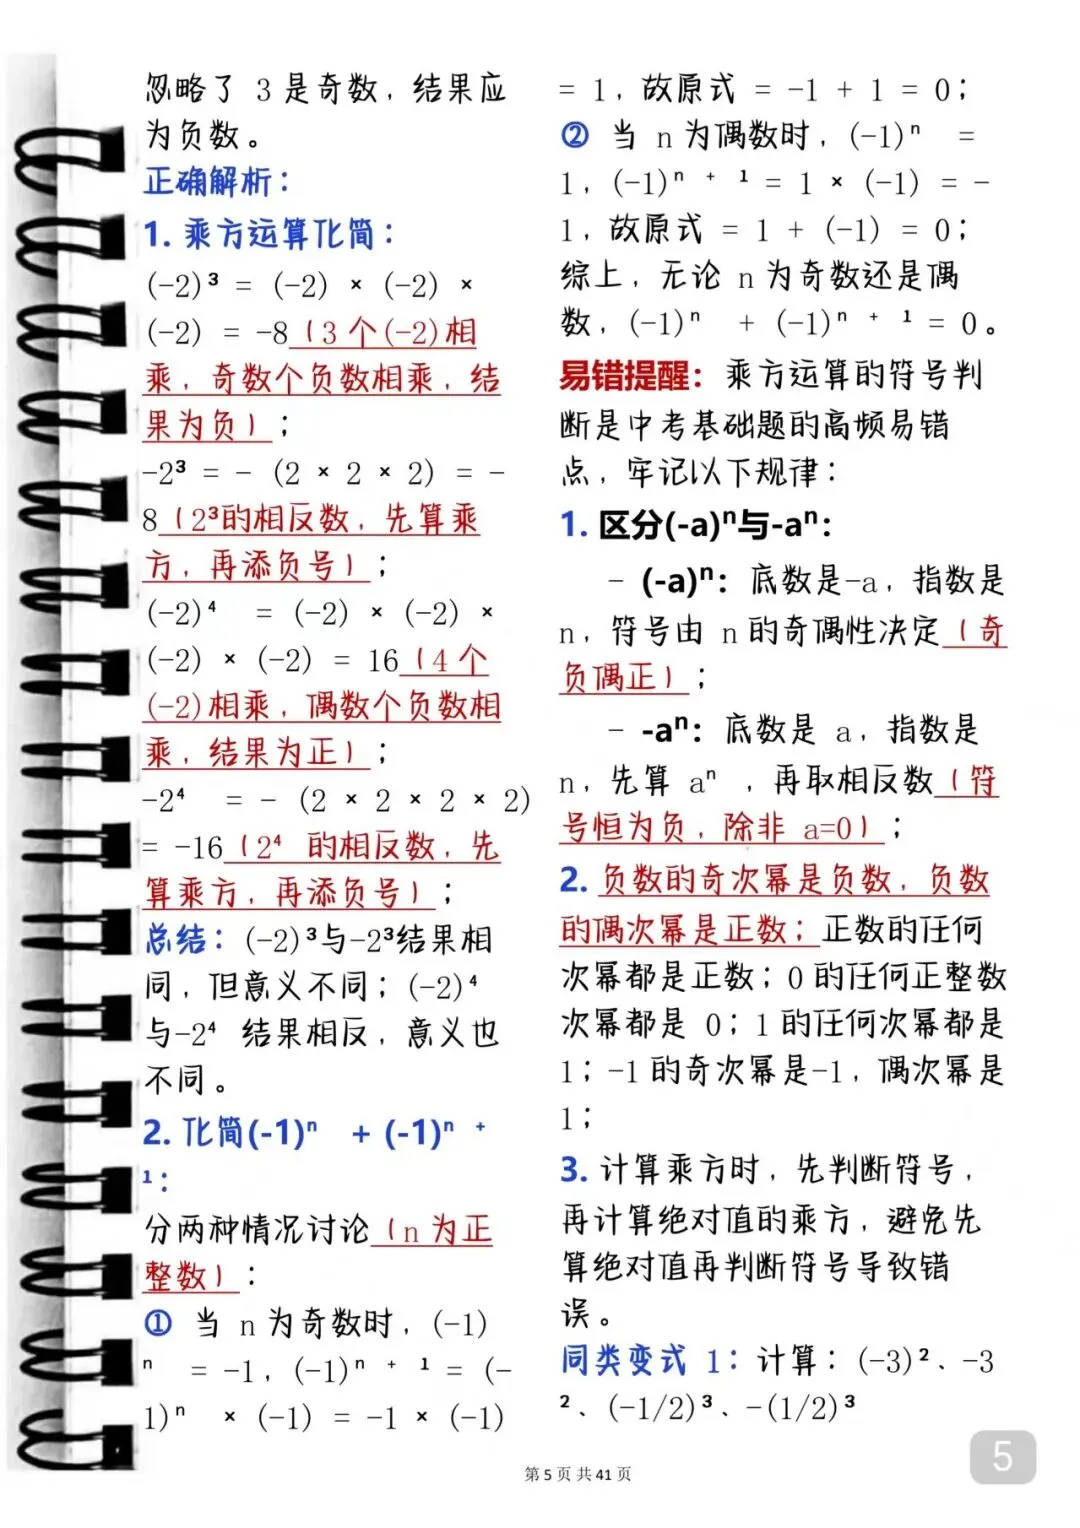 忽略了 3 是奇数，结果应
为负数。
正确解析：
1. 乘方运算化简：
(-2)³ = (-2) × (-2) ×
(-2) = -8（3 个(-2)相
乘，奇数个负数相乘，结
果为负）；
-2³ = - (2 × 2 × 2) = -
8（2³的相反数，先算乘
方，再添负号）；
(-2)⁴ = (-2) × (-2) ×
(-2) × (-2) = 16（4 个
(-2)相乘，偶数个负数相
乘，结果为正）；
-2⁴ = - (2 × 2 × 2 × 2)
= -16（2⁴ 的相反数，先
算乘方，再添负号）；
总结：(-2)³与-2³结果相
同，但意义不同；(-2)⁴
与-2⁴ 结果相反，意义也
不同。
2. 化简(-1)ⁿ + (-1)ⁿ ⁺
¹：
分两种情况讨论（n 为正
整数）：
① 当 n 为奇数时，(-1)
ⁿ = -1，(-1)ⁿ ⁺ ¹ = (-
1)ⁿ × (-1) = -1 × (-1)
= 1，故原式 = -1 + 1 = 0；
② 当 n 为偶数时，(-1)ⁿ =
1，(-1)ⁿ ⁺ ¹ = 1 × (-1) = -
1，故原式 = 1 + (-1) = 0；
综上，无论 n 为奇数还是偶
数，(-1)ⁿ + (-1)ⁿ ⁺ ¹ = 0。
易错提醒：乘方运算的符号判
断是中考基础题的高频易错
点，牢记以下规律：
1. 区分(-a)ⁿ与-aⁿ：
- (-a)ⁿ：底数是-a，指数是
n，符号由 n 的奇偶性决定（奇
负偶正）；
- -aⁿ：底数是 a，指数是
n，先算 aⁿ ，再取相反数（符
号恒为负，除非 a=0）；
2. 负数的奇次幂是负数，负数
的偶次幂是正数；正数的任何
次幂都是正数；0 的任何正整数
次幂都是 0；1 的任何次幂都是
1；-1 的奇次幂是-1，偶次幂是
1；
3. 计算乘方时，先判断符号，
再计算绝对值的乘方，避免先
算绝对值再判断符号导致错
误。
同类变式 1：计算：(-3)²、-3
²、(-1/2)³、-(1/2)³
第 5 页 共 41 页
5